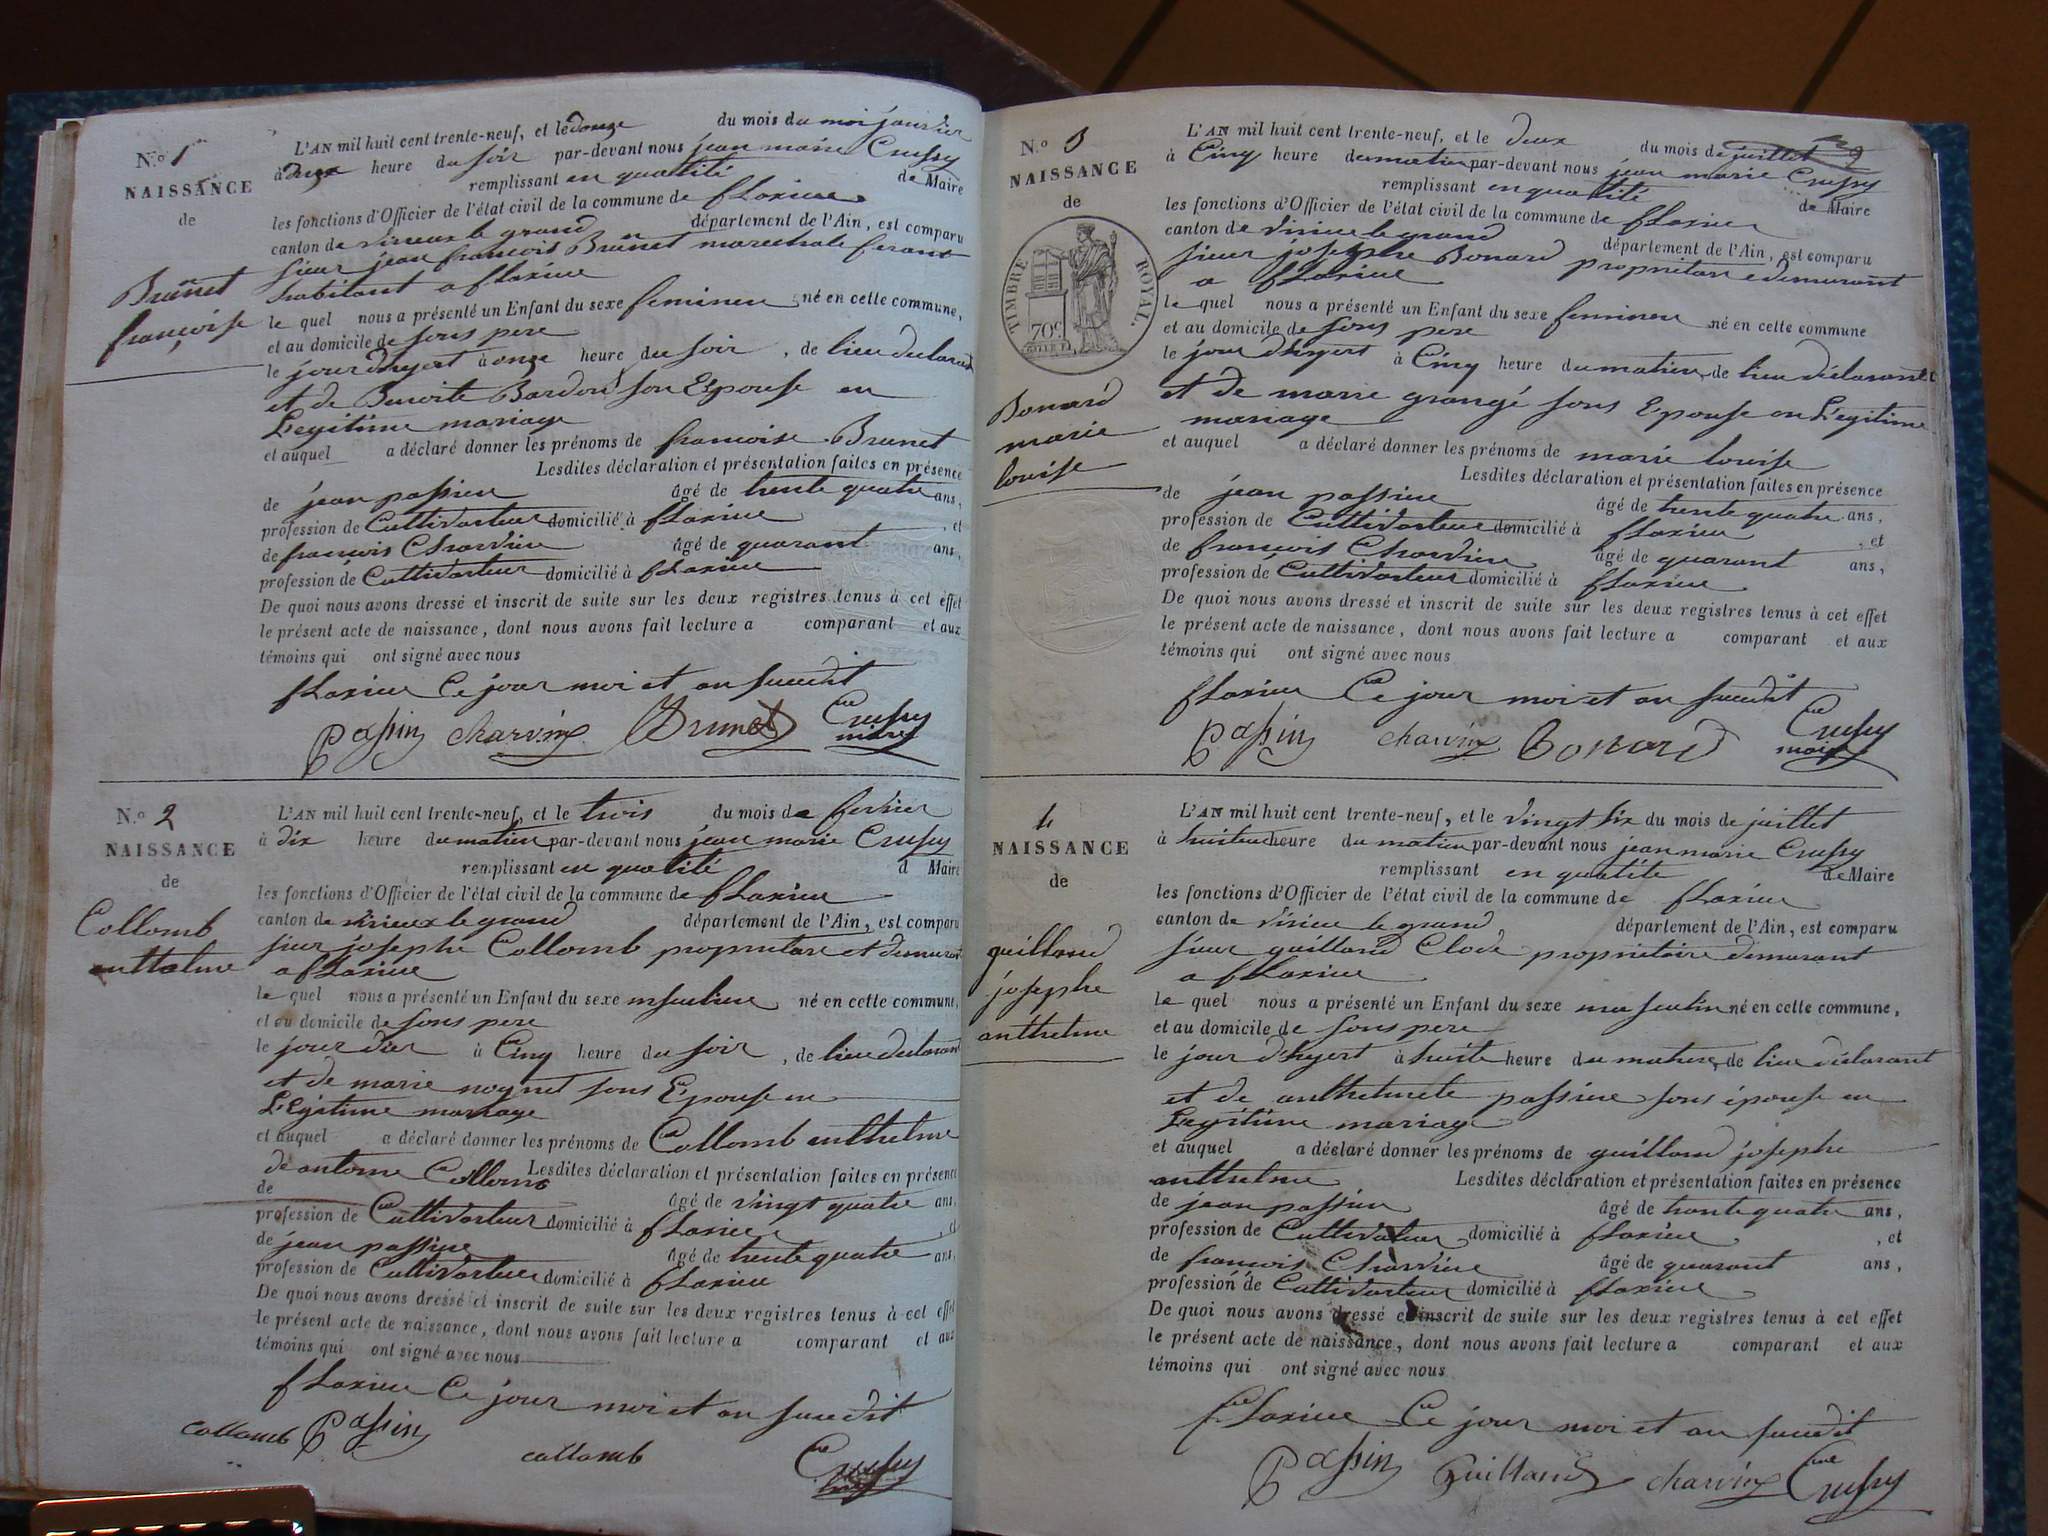 N.o 1
NAISSANCE
de
Brunet
françoise
L'AN mil huit cent trente-neuf, et le douze du mois du moi janvier
à deux heure du soir par-devant nous jean marie Crussy
remplissant en qualité de Maire
les fonctions d'Officier de l'état civil de la commune de flaxieu
canton de virieux le grand département de l'Ain, est comparu
sieur jean françois Brunet marechale ferant
habitant a flaxieu
le quel nous a présenté un Enfant du sexe femineu né en cette commune,
et au domicile de sons pere
le jour dhyert à onze heure du soir, de lieu declarend
et de Benoite Bardon son Epouse en
Legitime mariage
et auquel a déclaré donner les prénoms de francoise Brunet
Lesdites déclaration et présentation faites en présence
de jean passieu âgé de trente quatre ans,
profession de Cultivarteur domicilié à flaxieu, et
de francois Charvieu âgé de quarant ans,
profession de Cultivarteur domicilié à flaxieu
De quoi nous avons dressé et inscrit de suite sur les deux registres tenus à cet effet
le présent acte de naissance, dont nous avons fait lecture a comparant et aux
témoins qui ont signé avec nous
flaxieu Ce jour moi et an susudit
Passin charvin Brunet Crussy
maire
N.o 2
NAISSANCE
de
Collomb
anthelme
L'AN mil huit cent trente-neuf, et le trois du mois de fevrier
à dix heure du matieu par-devant nous jean marie Crussy
remplissant en qualité d Maire
les fonctions d'Officier de l'état civil de la commune de flaxieu
canton de virieux le grand département de l'Ain, est comparu
sieur josephe Collomb propriétare et demurant
a flaxieu
le quel nous a présenté un Enfant du sexe msculieu né en cette commune,
et au domicile de sons pere
le jour dier à Cinq heure du soir, de lieu declarant
et de marie noynet sons Epouse en
LEgitime mariage
et auquel a déclaré donner les prénoms de Collomb anthelme
de antoine Collomb Lesdites déclaration et présentation faites en présence
de âgé de vingt quatre ans,
profession de Cultivarteur domicilié à flaxieu, et
de jean passieu âgé de trente quatre ans,
profession de Cultivarteur domicilié à flaxieu
De quoi nous avons dressé et inscrit de suite sur les deux registres tenus à cet effet
le présent acte de naissance, dont nous avons fait lecture a comparant et aux
témoins qui ont signé avec nous
flaxieu Ce jour moi et an susudit
collomb Passin collomb Crussy
N.o 3
NAISSANCE
de
TIMBRE ROYAL.
70c
Bonard
marie
louise
L'AN mil huit cent trente-neuf, et le deux du mois de juillet
à Cinq heure du matieu par-devant nous jean marie Crussy
remplissant en qualité de Maire
les fonctions d'Officier de l'état civil de la commune de flaxieu
canton de virieu le grand département de l'Ain, est comparu
sieur josephe Bonard propritare demurant
a flaxieu
le quel nous a présenté un Enfant du sexe femineu né en cette commune
et au domicile de sons pere
le jour dhyert à Cinq heure du matieu, de lieu déclarant
et de marie grangé sons Epouse en LEgitime
mariage
et auquel a déclaré donner les prénoms de marie louise
Lesdites déclaration et présentation faites en présence
de jean passieu âgé de trente quatre ans,
profession de Cultivarteur domicilié à flaxieu, et
de francois Charvieu âgé de quarant ans,
profession de Cultivarteur domicilié à flaxieu
De quoi nous avons dressé et inscrit de suite sur les deux registres tenus à cet effet
le présent acte de naissance, dont nous avons fait lecture a comparant et aux
témoins qui ont signé avec nous
flaxieu Ce jour moi et an susudit
Passin charvin Bonard Crussy
maire
4
NAISSANCE
de
guilland
josephe
anthelme
L'AN mil huit cent trente-neuf, et le vingt six du mois de juillet
à heure du matieu par-devant nous jean marie Crussy
remplissant en qualité de Maire
les fonctions d'Officier de l'état civil de la commune de flaxieu
canton de virieu le grand département de l'Ain, est comparu
sieur guilland Clode propriétoire demurant
a flaxieu
le quel nous a présenté un Enfant du sexe masculin né en cette commune,
et au domicile de sons pere
le jour dhyert à huite heure du matieu, de lieu déclarant
et de anthelmete passieu sons épouse en
Legitime mariage
et auquel a déclaré donner les prénoms de guilland josephe
anthelme Lesdites déclaration et présentation faites en présence
de jean passieu âgé de trente quatre ans,
profession de Cultivateur domicilié à flaxieu, et
de francois Charvieu âgé de quarant ans,
profession de Cultivarteur domicilié à flaxieu
De quoi nous avons dressé et inscrit de suite sur les deux registres tenus à cet effet
le présent acte de naissance, dont nous avons fait lecture a comparant et aux
témoins qui ont signé avec nous
flaxieu Ce jour moi et an susudit
Passin Guilland charvin Crussy